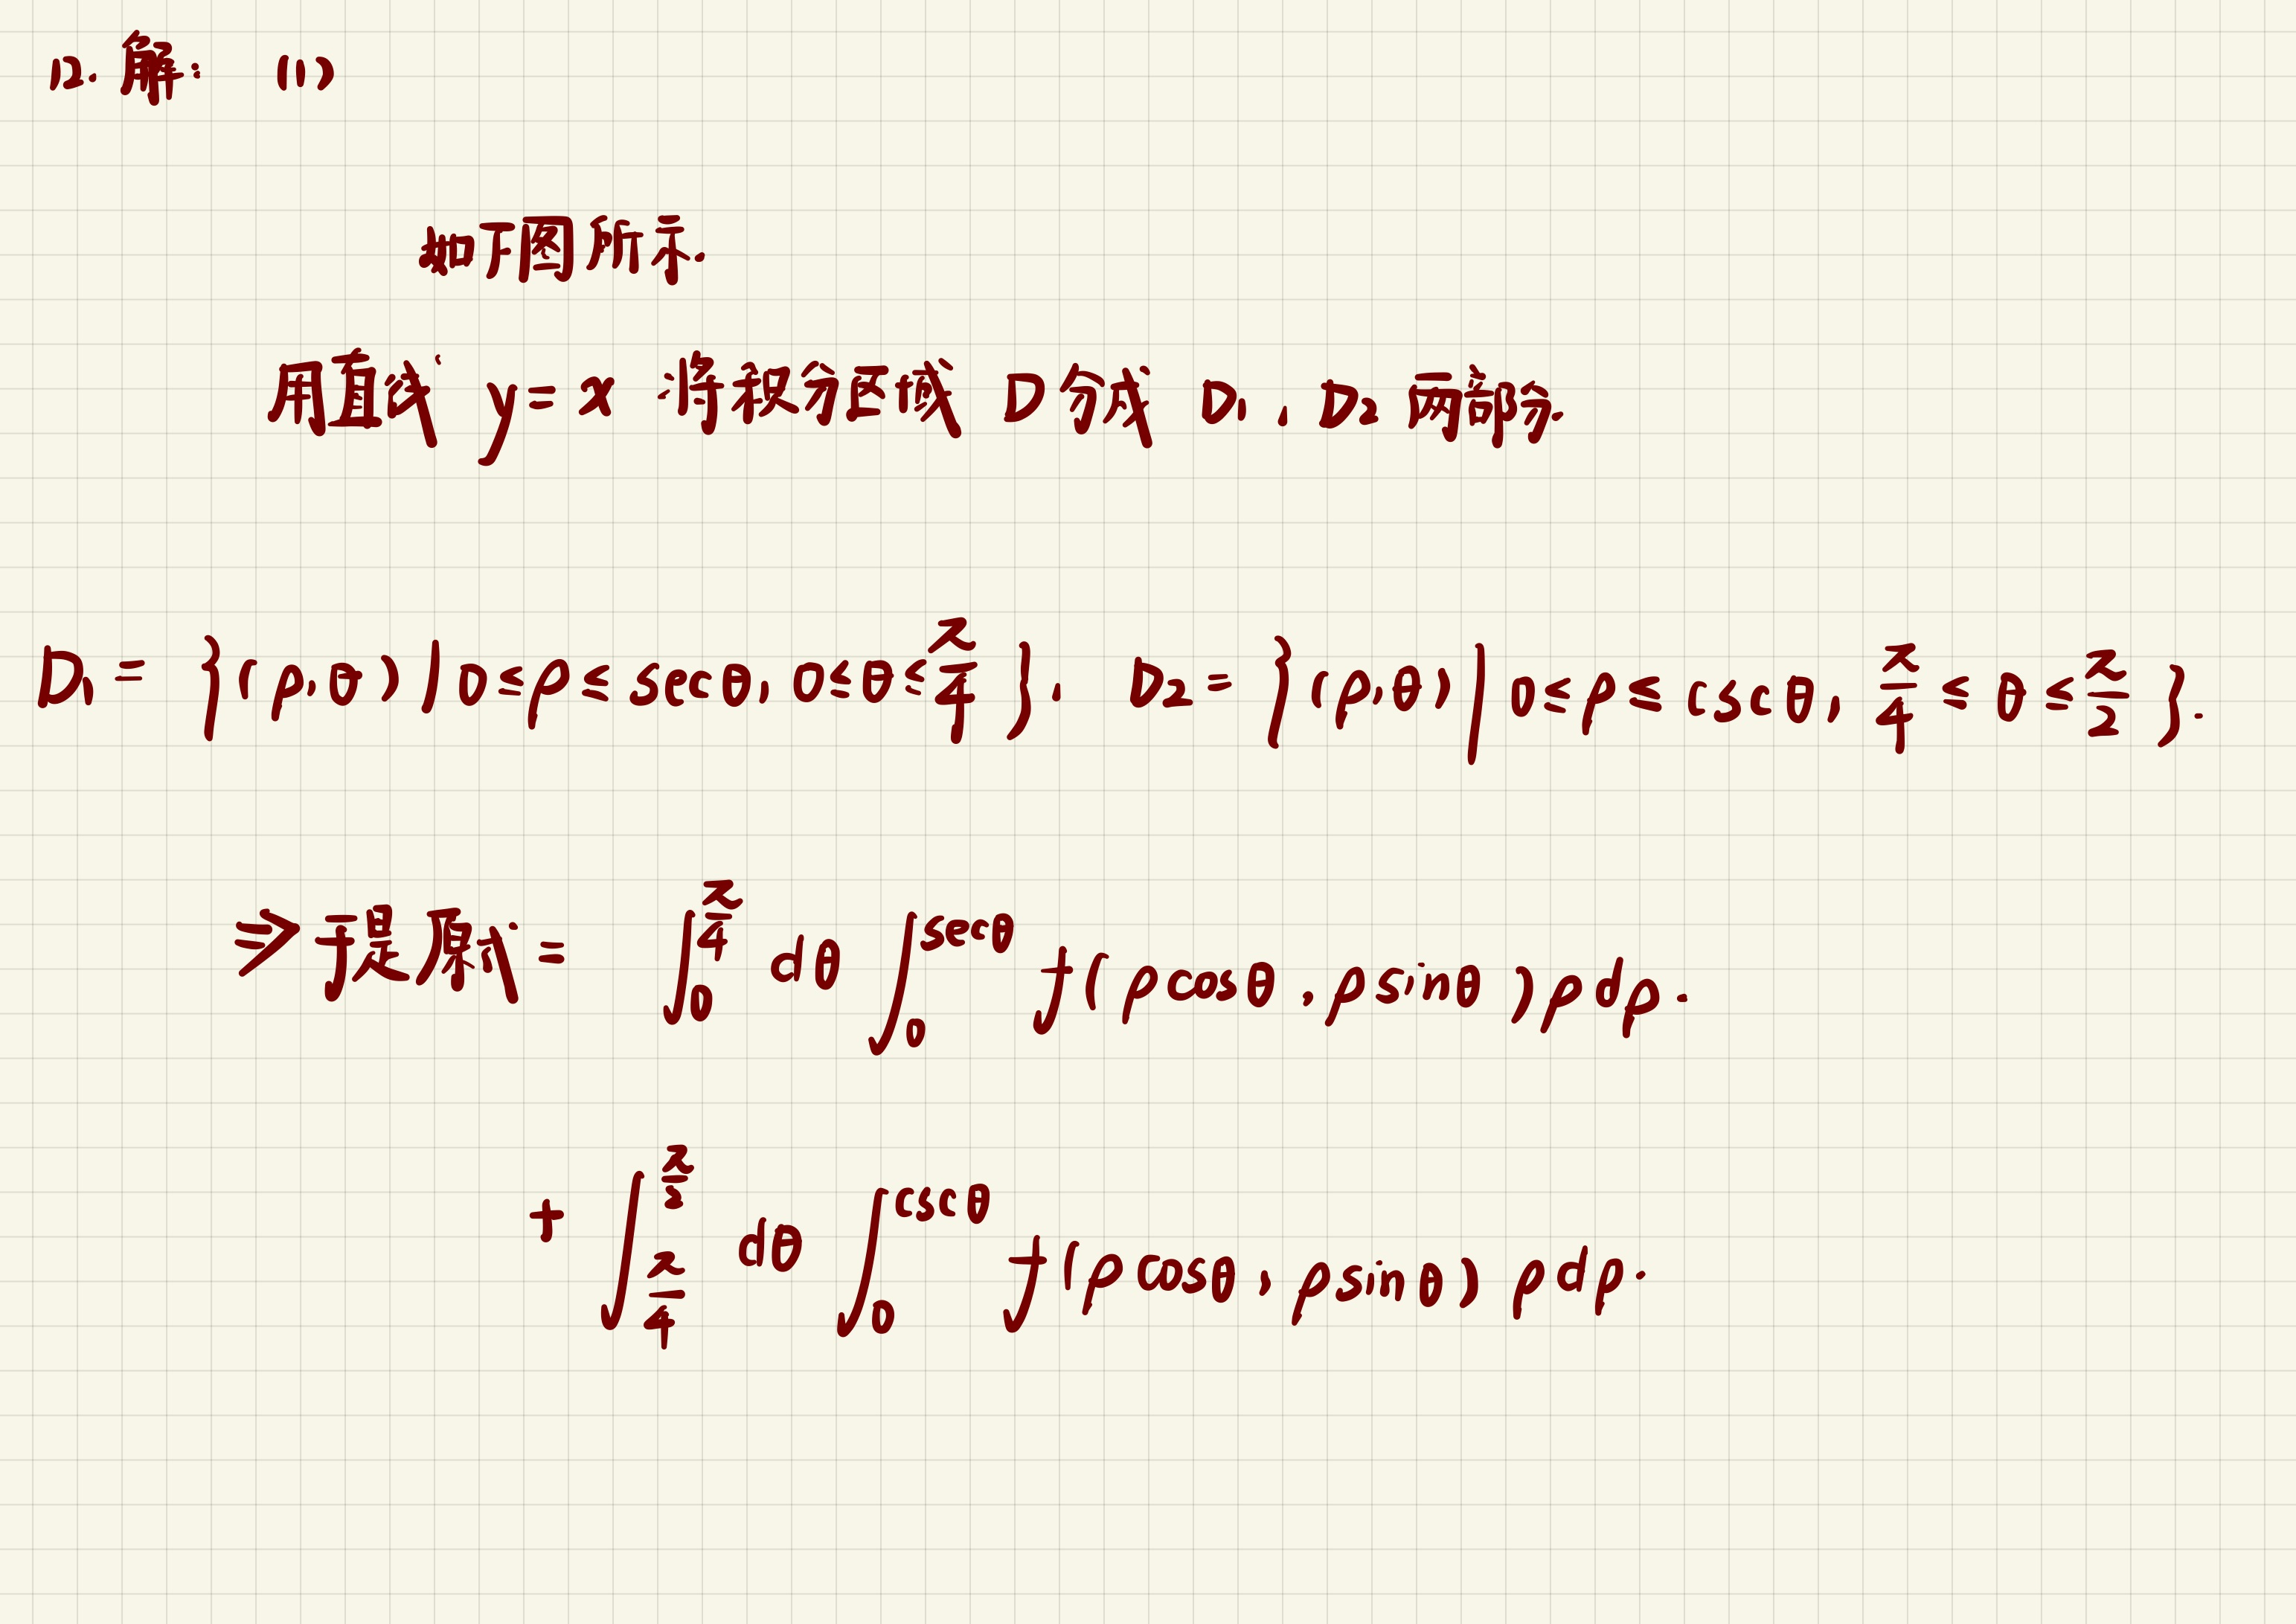 12. 解: (1)
如下图所示.
用直线 y = x 将积分区域 D 分成 D₁, D₂ 两部分.
D₁ = {(ρ,θ) | 0 ≤ ρ ≤ secθ, 0 ≤ θ ≤ π/4}, D₂ = {(ρ,θ) | 0 ≤ ρ ≤ cscθ, π/4 ≤ θ ≤ π/2}.
⇒ 于是原式 = ∫₀^(π/4) dθ ∫₀^(secθ) f(ρcosθ, ρsinθ) ρ dρ.
+ ∫_(π/4)^(π/2) dθ ∫₀^(cscθ) f(ρcosθ, ρsinθ) ρ dρ.